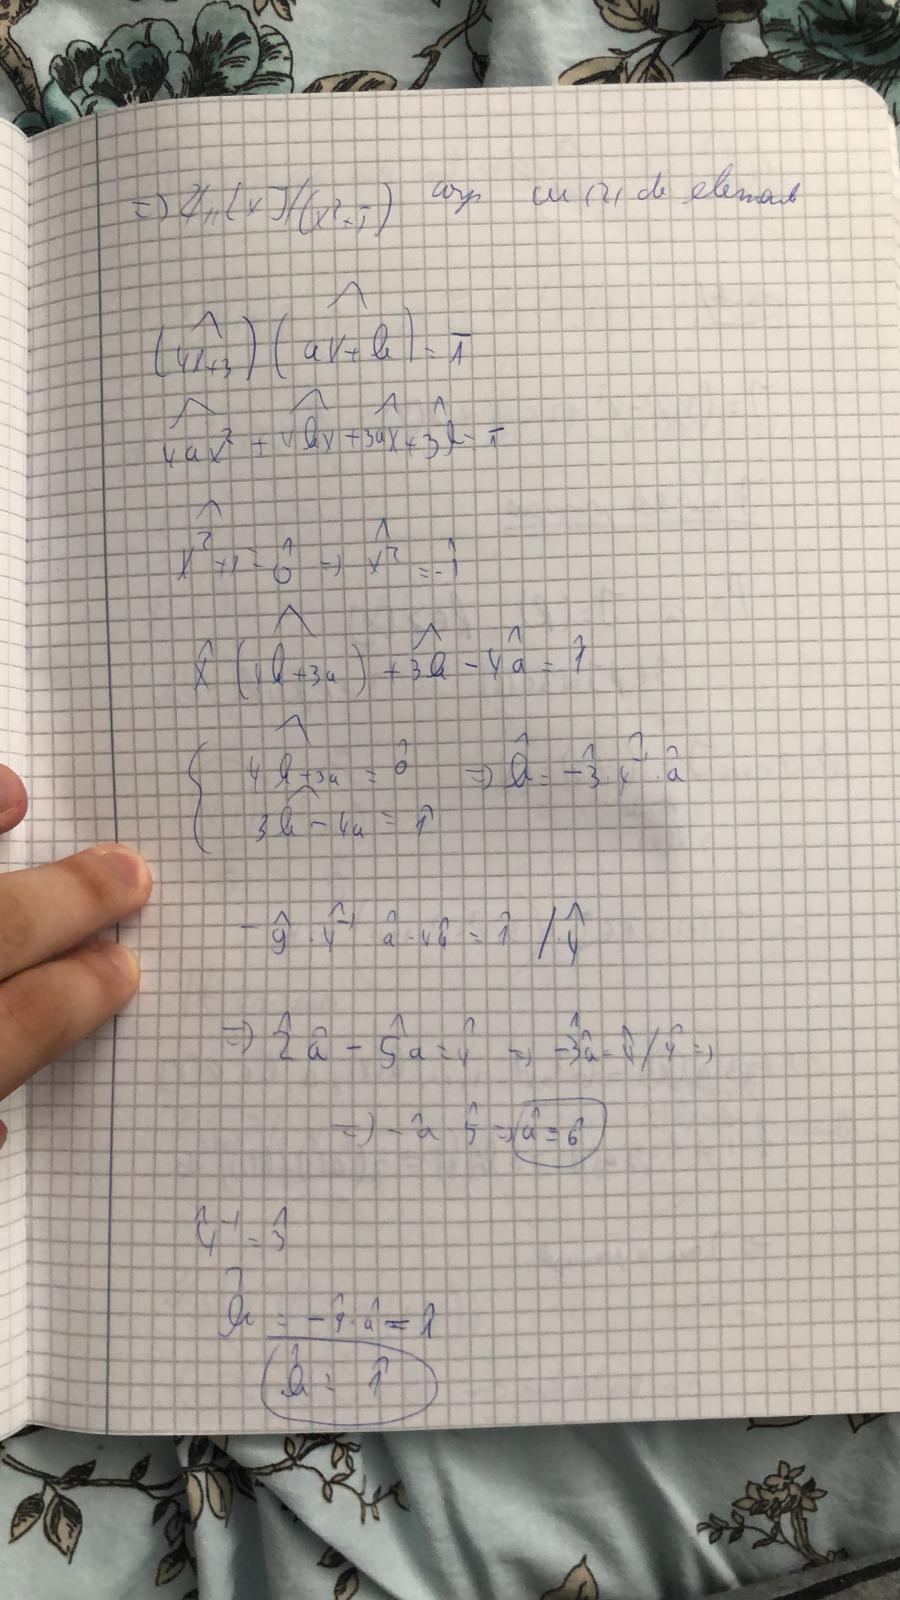 => Z₁₁[X]/(x²+1̄) corp cu 121 de elemente
(4x+3)^ (ax+b)^ = 1̄
4ax²^ + 4bx^ + 3ax^ + 3b^ = 1̄
x²+1^ = 0̂ => x²^ = -1̂
x̂ (4b+3a)^ + 3b^ - 4â = 1̂
4b+3a^ = 0̂ => b̂ = -3̂·4̂⁻¹·â
3b-4a^ = 1̂
-9̂·4̂⁻¹ â - 4â = 1̂ /·4̂
=> 2̂â - 5̂a = 4̂ => -3̂â = 4̂ /·4̂ =>
=> -â 5̂ => â = 6̂
4̂⁻¹ = 3̂
b̂ = -9̂·â = 1̂
b̂ = 1̂